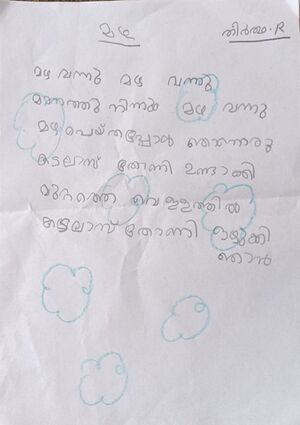 മഴ
തീർത്ഥ.R
മഴ വന്നു മഴ വന്നു
മാനത്തു നിന്നും മഴ വന്നു
മഴ പെയ്തപ്പോൾ ഞാനൊരു
കടലാസ് തോണി ഉണ്ടാക്കി
മുറ്റത്തെ വെള്ളത്തിൽ
കടലാസ് തോണി ഒഴുക്കി
ഞാൻ